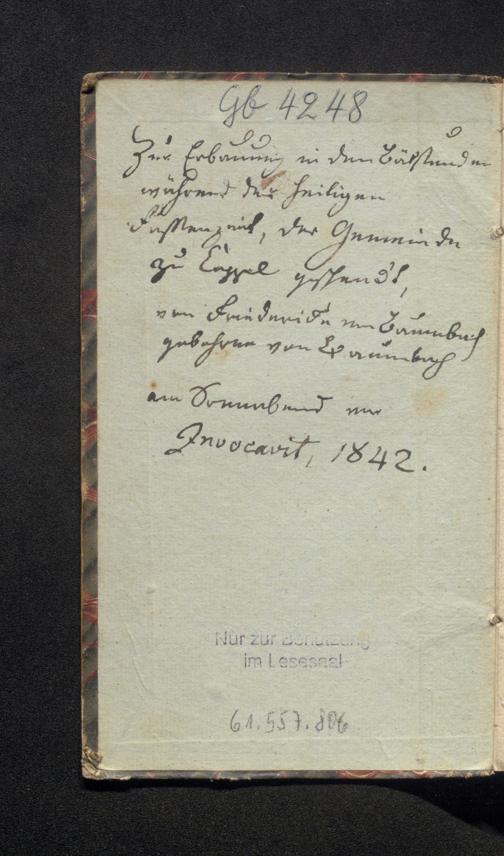 Gb 4248
Zur Erbauung in den Bätstunden
während der heiligen
Fastenzeit, der Gemeinde
zu Cappel geschenkt,
von Friederike von Baumbach
gebohrne von Baumbach
am Sonnabend vor
Invocavit, 1842.
Nur zur Benutzung
im Lesesaal
61.557.806